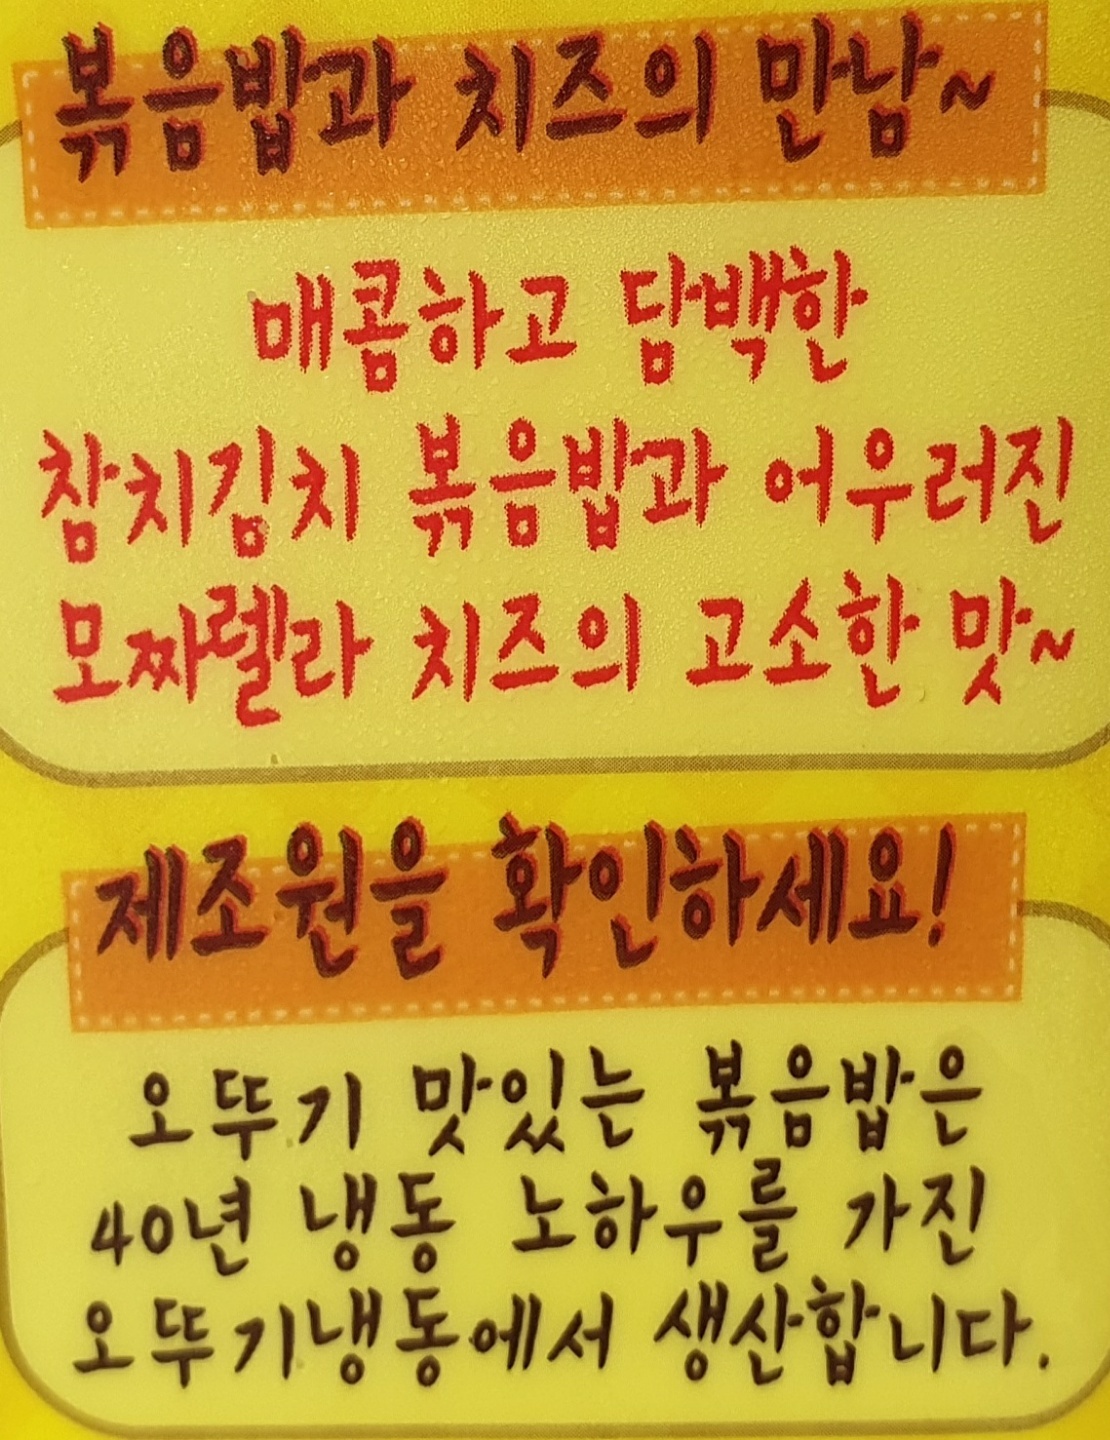 볶음밥과 치즈의 만남~
매콤하고 담백한
참치김치 볶음밥과 어우러진
모짜렐라 치즈의 고소한 맛~
제조원을 확인하세요!
오뚜기 맛있는 볶음밥은
40년 냉동 노하우를 가진
오뚜기냉동에서 생산합니다.